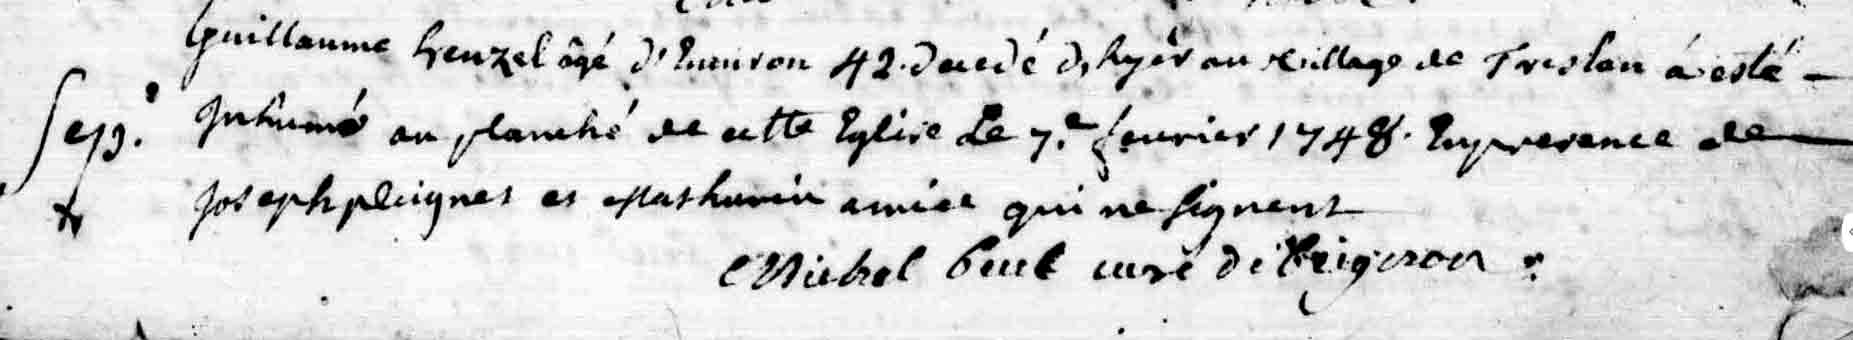 Guillaume henzel âgé d'Environ 42. decedé d'hyër au village de Treslan á esté
Sep. Inhumé au planché de cette Eglise Le 7.e feurier 1748. En presence de
Joseph pleignet et Mathurin amice qui ne signent
Michel curé de